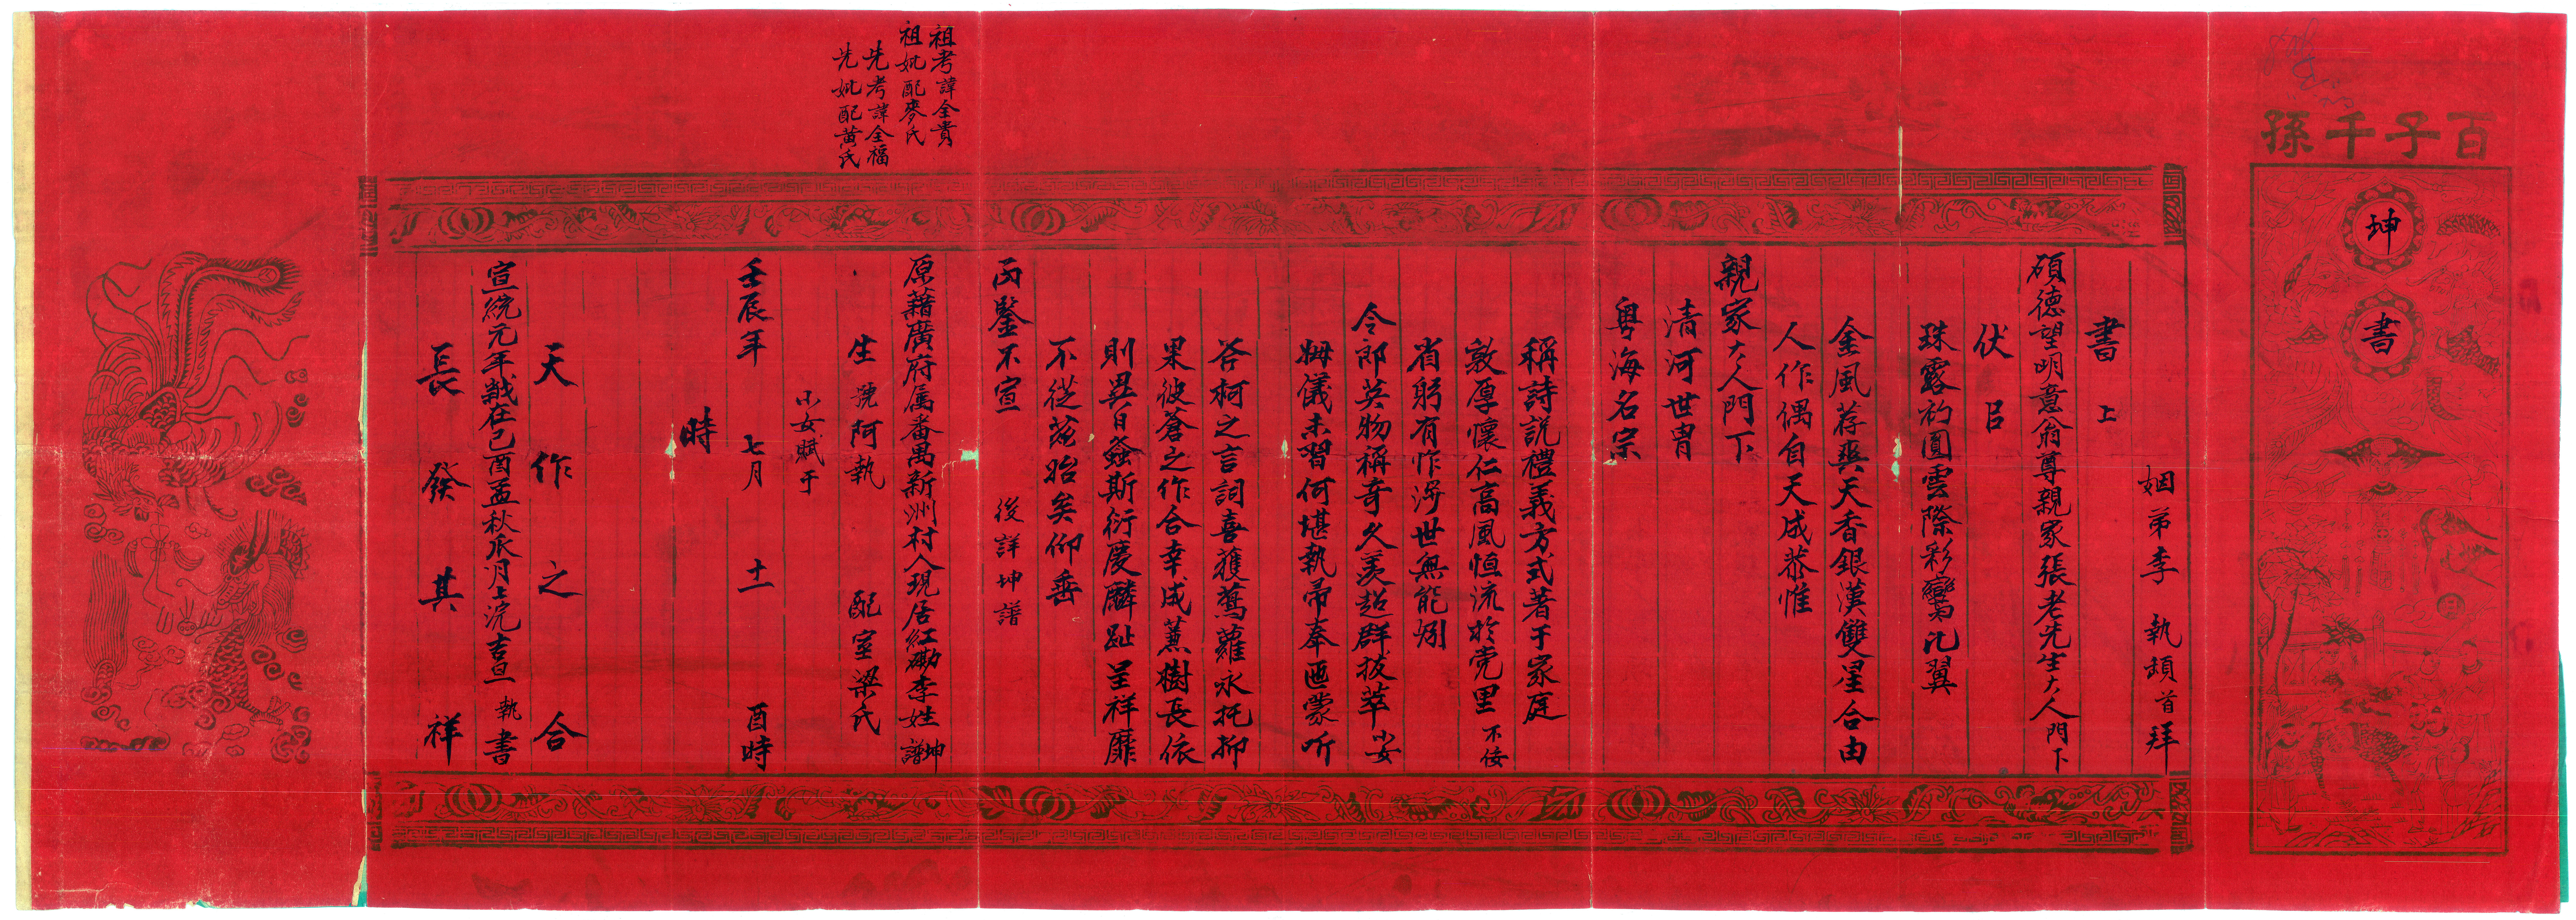 百子千孫
坤
書
姻弟李　執頓首拜
書上
碩德望明意翁尊親家張老先生大人門下
伏㠯
珠露初圓雲際彩鸞比翼
金風荐爽天香銀漢雙星合由
人作偶自天成恭惟
親家大人門下
清河世胄
粵海名宗
稱詩說禮義方式著于家庭
敦厚懷仁高風恒流於党里不佞
省躬有怍涉世無能
令郎英物稱奇久羨超群拔萃小女
姆儀未習何堪執帚奉匜蒙听
斧柯之言詞喜蒦蔦蘿永托抑
果彼蒼之作合幸成蕙樹長依
則異日螽斯衍慶麟趾呈祥靡
不從茲眙矣仰垂
丙鑒不宣　後詳坤譜
祖考諱全貴
祖妣配麥氏
先考諱全福
先妣配黃氏
原藉廣府属番禺新洲村人現居紅磡李姓坤譜
生號阿執　配室梁氏
小女賦于
壬辰年七月十一酉時
時
天作之合
宣統元年歲在己酉孟秋瓜月上浣吉旦　執書
長發其祥